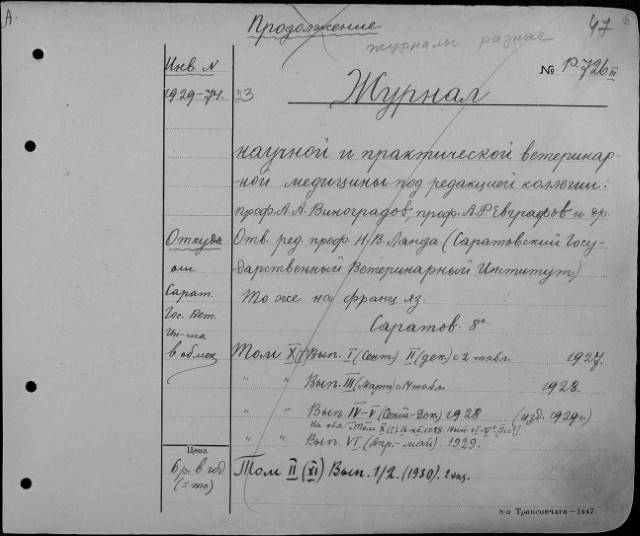 А.
Продолжение
47
журналы разные
Инв. N
№ Р.726 III
1929-71.
23
Журнал
научной и практической ветеринар-
ной медицины под редакцией коллегии:
проф. А.А. Виноградов, проф. А.Р. Евграфов и др.
Откуда
Отв. ред. проф. И.В. Ланда (Саратовский Госу-
от
дарственный Ветеринарный Институт)
Сарат.
То же на франц яз.
Гос. Вет.
Саратов 8°
Ин-та
в обмен
Том X Вып. I (Сент.) II (дек.) с 2 табл. 1927.
" " Вып. III (Март) с 14 табл. 1928.
" " Вып. IV-V (Сент-Дек.) 1928 (изд. 1929 г.)
На обл. Том X
" " Вып. VI. (Апр.- май). 1929.
Цена
6 р. в год
Том II (XI) Вып. 1/2. (1930). 2 экз.
(= то)
8-я Транспечать—1447